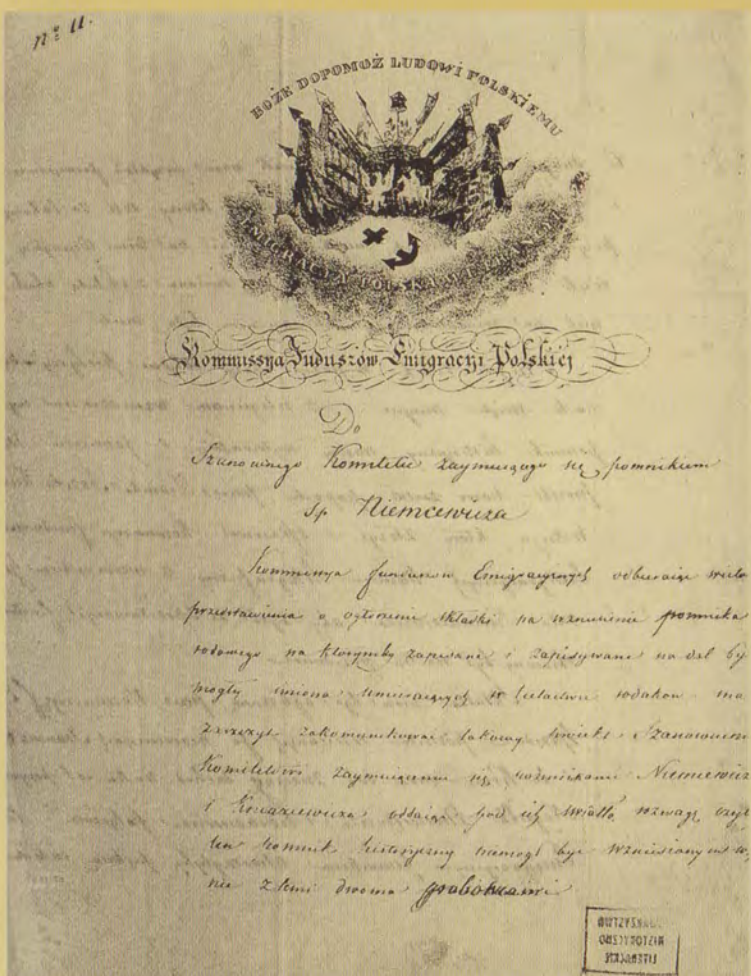 Nº 11.
BOŻE DOPOMOŻ LUDOWI POLSKIEMU
EMIGRACYA POLSKA WE FRANCYI
Kommissya Funduszów Emigracyi Polskiéj
Do
Szanownego Komitetu zaymuiącego się pomnikiem
Sp. Niemcewicza
Kommissya funduszow Emigracyinych odbieraiąc wiele
przedstawienia o ogłoszenie składki na wzniesienie pomnika
na którymby zapisane i zapisywane na dal by
mogły imiona umieraiących w tułactwie rodakow ma
zaszczyt zakomunikować takowy Szanownemu
Komitetowi zaymuiącemu się pomnikami Niemcewicza
i Kniaziewicza oddaiąc pod ich światłą rozwagę czyli
ten pomnik historyczny niemogł być wzniesiony
z temi dwoma grobowcami